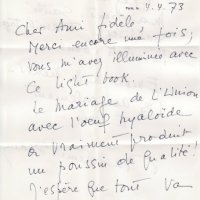 4.4.73
Cher Ami fidèle,
Merci encore une fois,
vous m'avez illuminée avec
ce light book.
Le mariage de L'Union
avec l'oeuf hyaloïde
a vraiment produit
un poussin de qualité!
J'espère que tout va